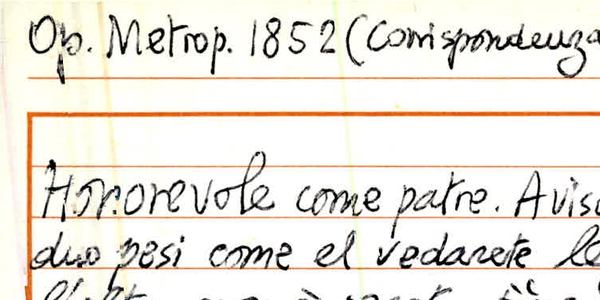 Op. Metrop. 1852 (Corrispondenza
Honorevole come patre. Aviso
duo pesi come el vedarete le